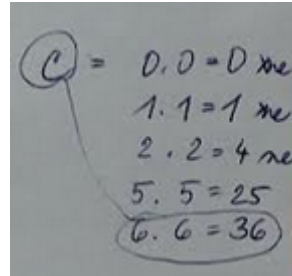 C = 0.0=0 ne
1.1=1 ne
2.2=4 ne
5.5=25
6.6=36